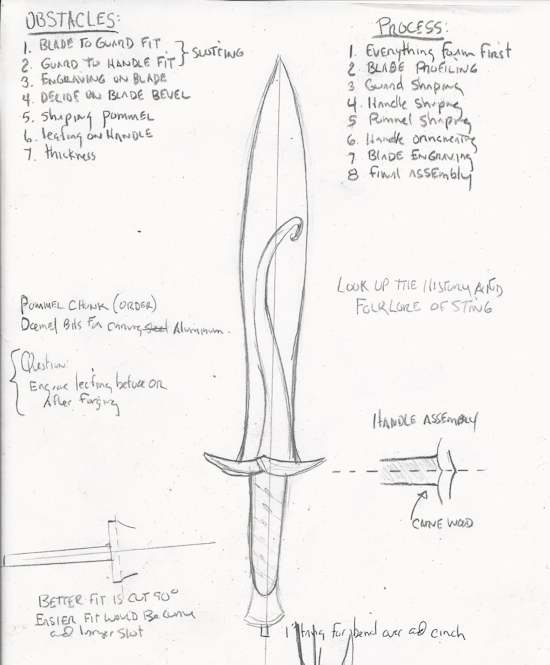 OBSTACLES:
1. BLADE TO GUARD FIT
2. GUARD TO HANDLE FIT
} SLOTTING
3. ENGRAVING ON BLADE
4. DECIDE ON BLADE BEVEL
5. Shaping POMMEL
6. leafing ON HANDLE
7. thickness
PROCESS:
1. Everything foam First
2 BLADE PROFILING
3 Guard Shaping
4. Handle Shaping
5 Pommel Shaping
6. Handle ornamenting
7 BLADE ENGRAVING
8 Final ASSEMBLY
LOOK UP THE HISTORY AND
FOLKLORE OF STING
POMMEL CHUNK (ORDER)
Dremel Bits For Carving Steel Aluminum.
Question:
Engrave leafing before OR
After Forging
HANDLE ASSEMBLY
BETTER FIT IS CUT 90°
EASIER FIT WOULD BE CURVE
and longer Slot
1" tang for bend over and cinch